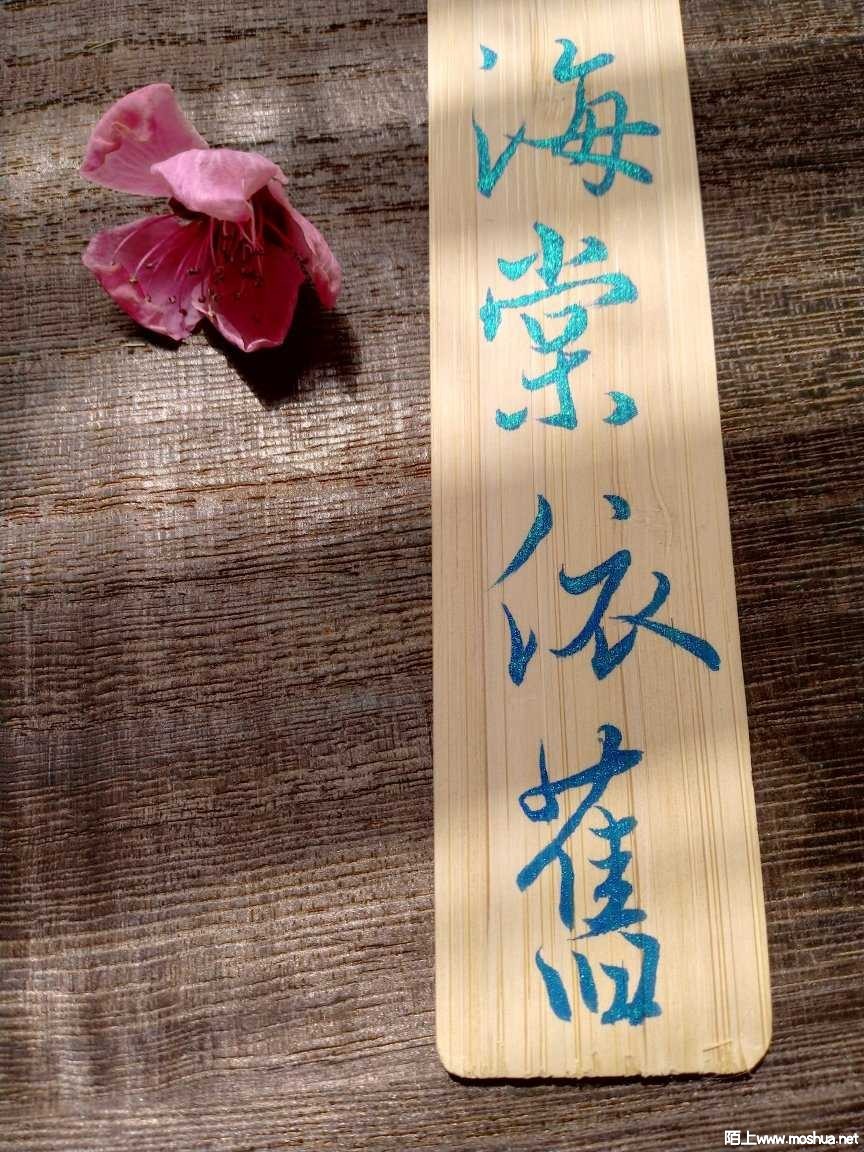 海棠依舊
陌上www.moshua.net